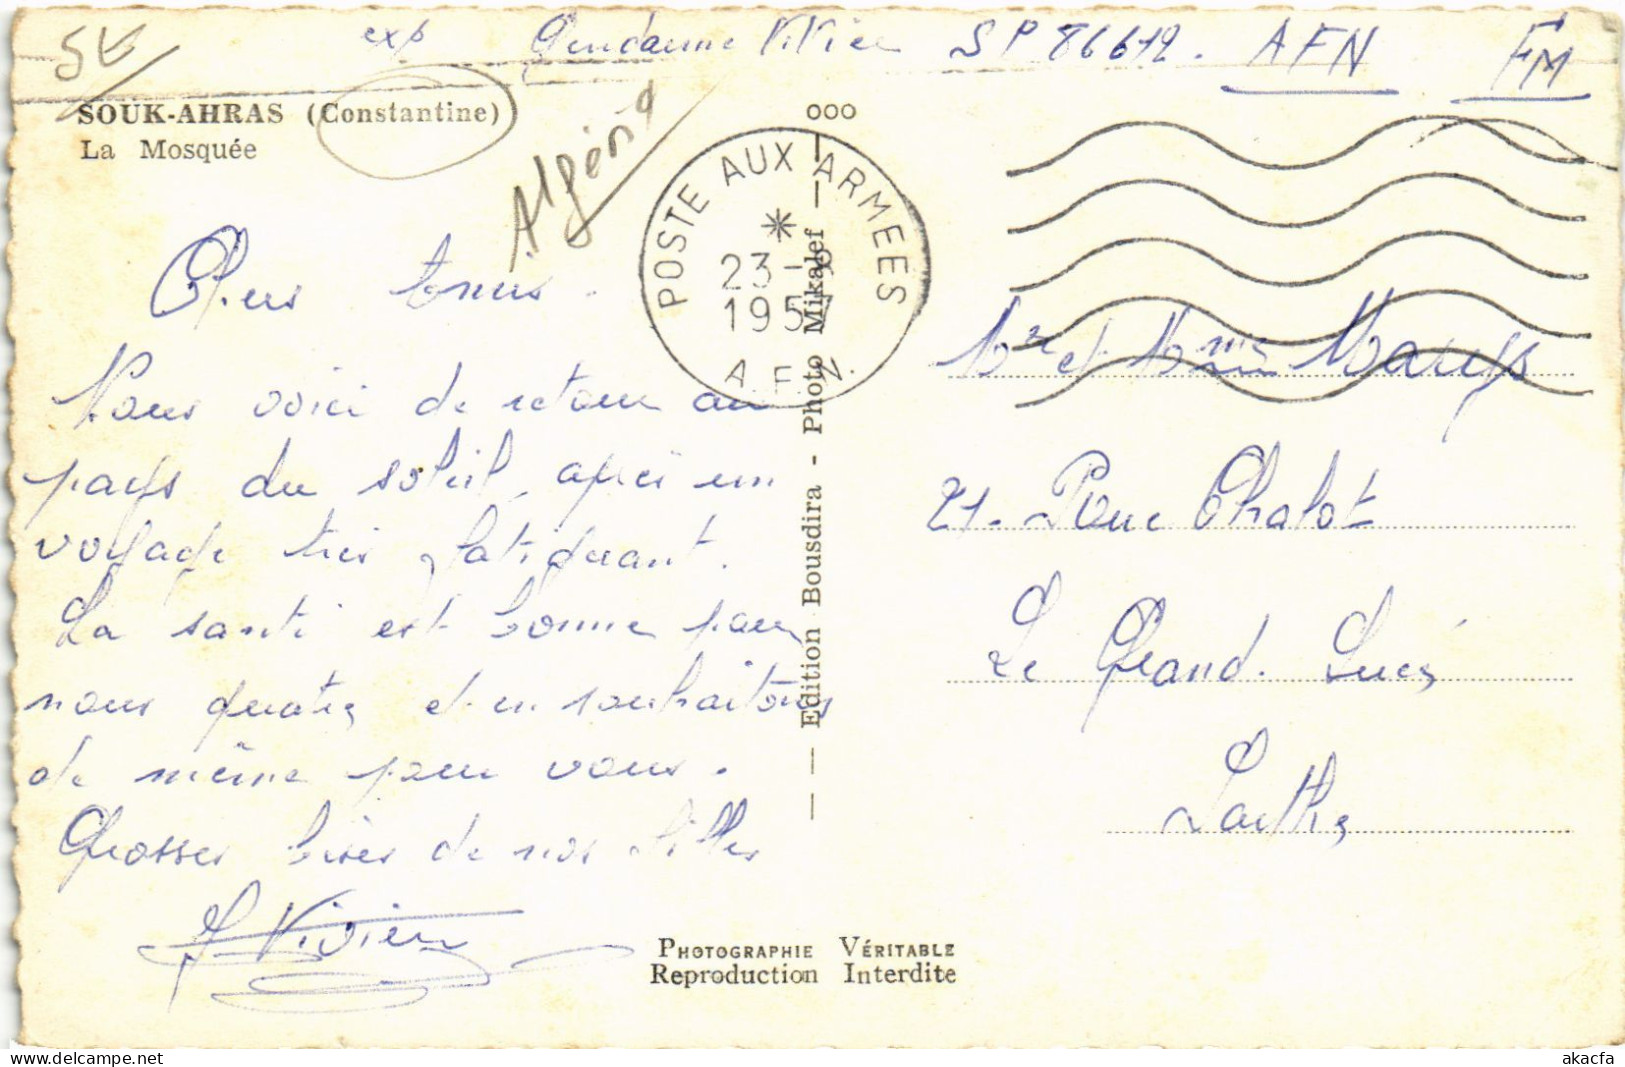 5€
exp Gendarme Vivien SP 86612. AFN FM
SOUK-AHRAS (Constantine)
La Mosquée
Algérie
POSTE AUX ARMEES
23-
1957
A.F.N.
Chers Amis.
Nous voici de retour au
pays du soleil, après un
voyage très fatiguant.
La santé est bonne pour
nous quatre et en souhaitons
de même pour vous.
Grosses bises de nos filles
Vivien
Edition Bousdira - Photo Mikalef
Mr et Mme
21. Rue Chalot
Le Grand-Lucé
Sarthe
PHOTOGRAPHIE VÉRITABLE
Reproduction Interdite
akacfa